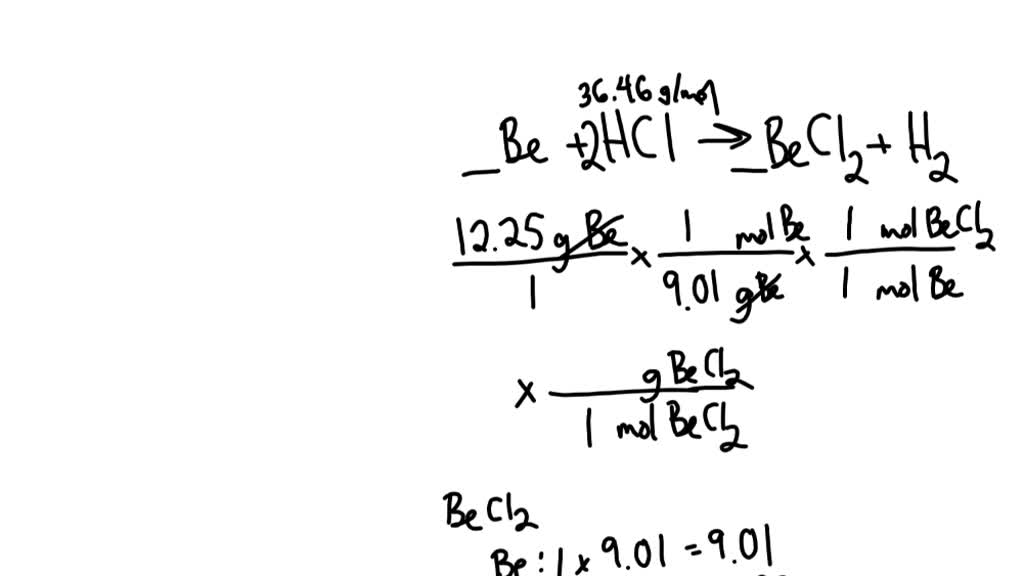 36.46 g/mol
_Be + 2HCl → _BeCl₂ + H₂
12.25 g Be / 1 × 1 mol Be / 9.01 g Be × 1 mol BeCl₂ / 1 mol Be
× g BeCl₂ / 1 mol BeCl₂
BeCl₂
Be : 1 × 9.01 = 9.01